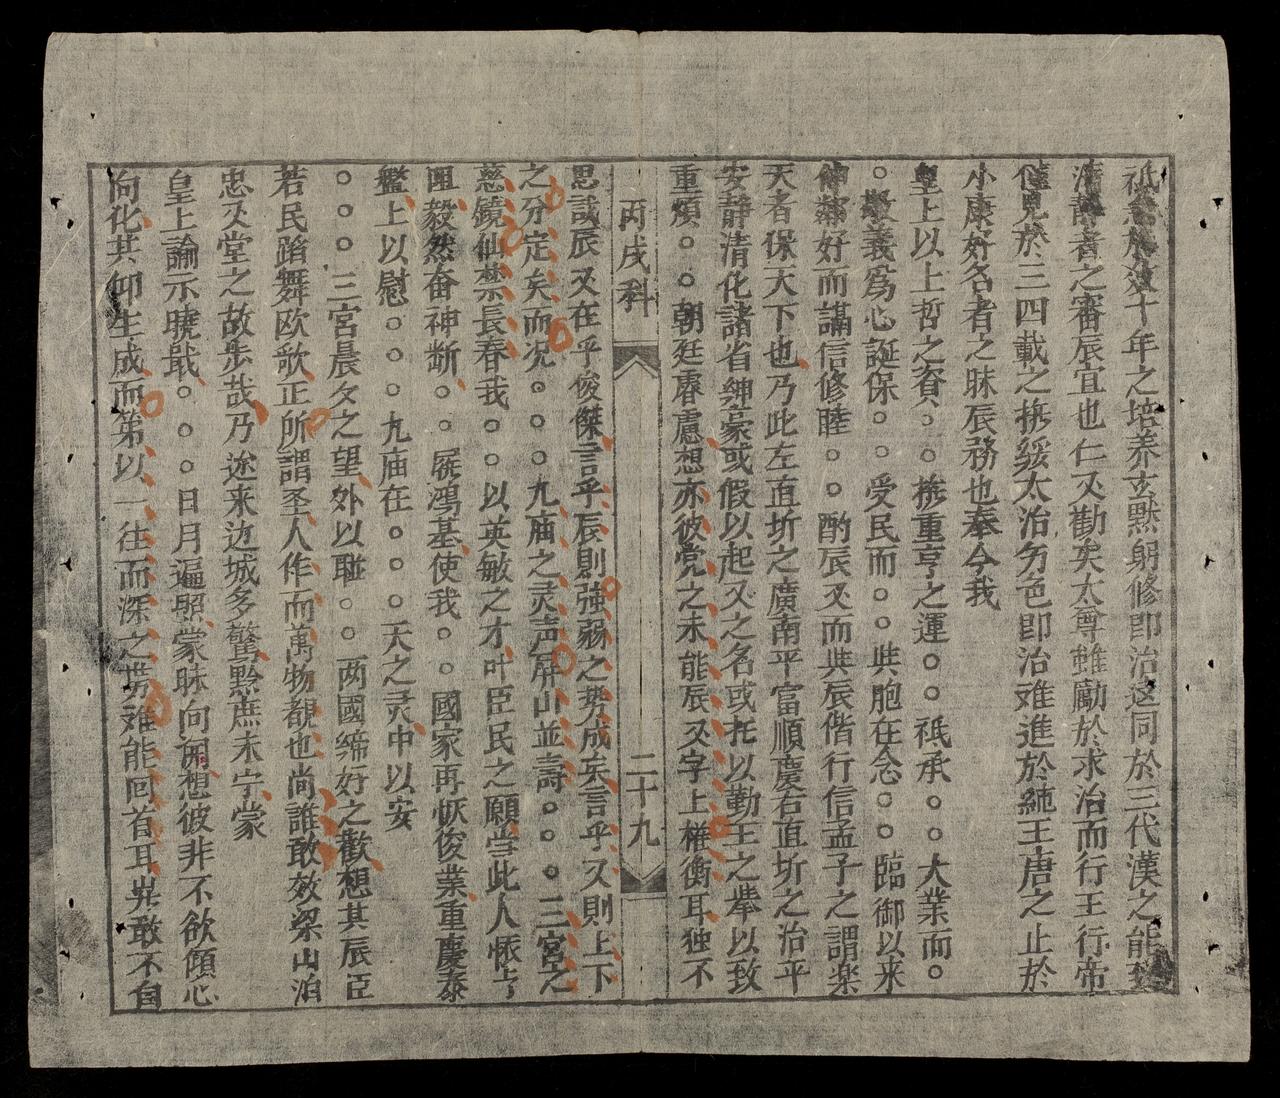 十年之培养玄黙躬修即治这同於三代漢之能致
清静者之審辰宜也仁又勸矣太尊雖勵於求治而行王行帝
僅見於三四載之撫綏太治另色即治难進於純王唐之止於
小康好名者之昧辰務也奉今我
皇上以上哲之資○○撫重亨之運○○祗承○○大業而○
○擬義為心誕保○○受民而○○共胞在念○○臨御以来
伸鄰好而講信修睦○○酌辰又而共辰偕行信孟子之謂楽
天者保天下也乃此左直圻之廣南平富順慶右直圻之治平
安静清化諸省紳豪或假以起又之名或托以勤王之擧以致
重煩○○朝廷睿慮想亦彼党之未能辰又字上權衡耳独不
丙戌科
二十九
思哉辰又在乎俊傑言乎辰則強弱之势成矣言乎又則上下
之分定矣而况○○○九庙之灵声屏山並壽○○○三宮之
慈鏡仙禁長春我○○以英敏之才叶臣民之願当此人
阻毅然奋神断○○展鴻基使我○○國家再恢俊業重慶泰
盤上以慰○○○九庙在○○○天之灵中以安
○○○三宮晨夕之望外以聯○○两國締好之歡想其辰臣
若民蹈舞欧歌正所謂圣人作而萬物覩也尚誰敢效梁山泊
忠又堂之故步哉乃迩来边城多驚黔庶未宁蒙
皇上諭示曉戢○○○日月遍照蒙昧向開想彼非不欲傾心
向化共仰生成而第以一往而深之势难能回首耳岂敢不自